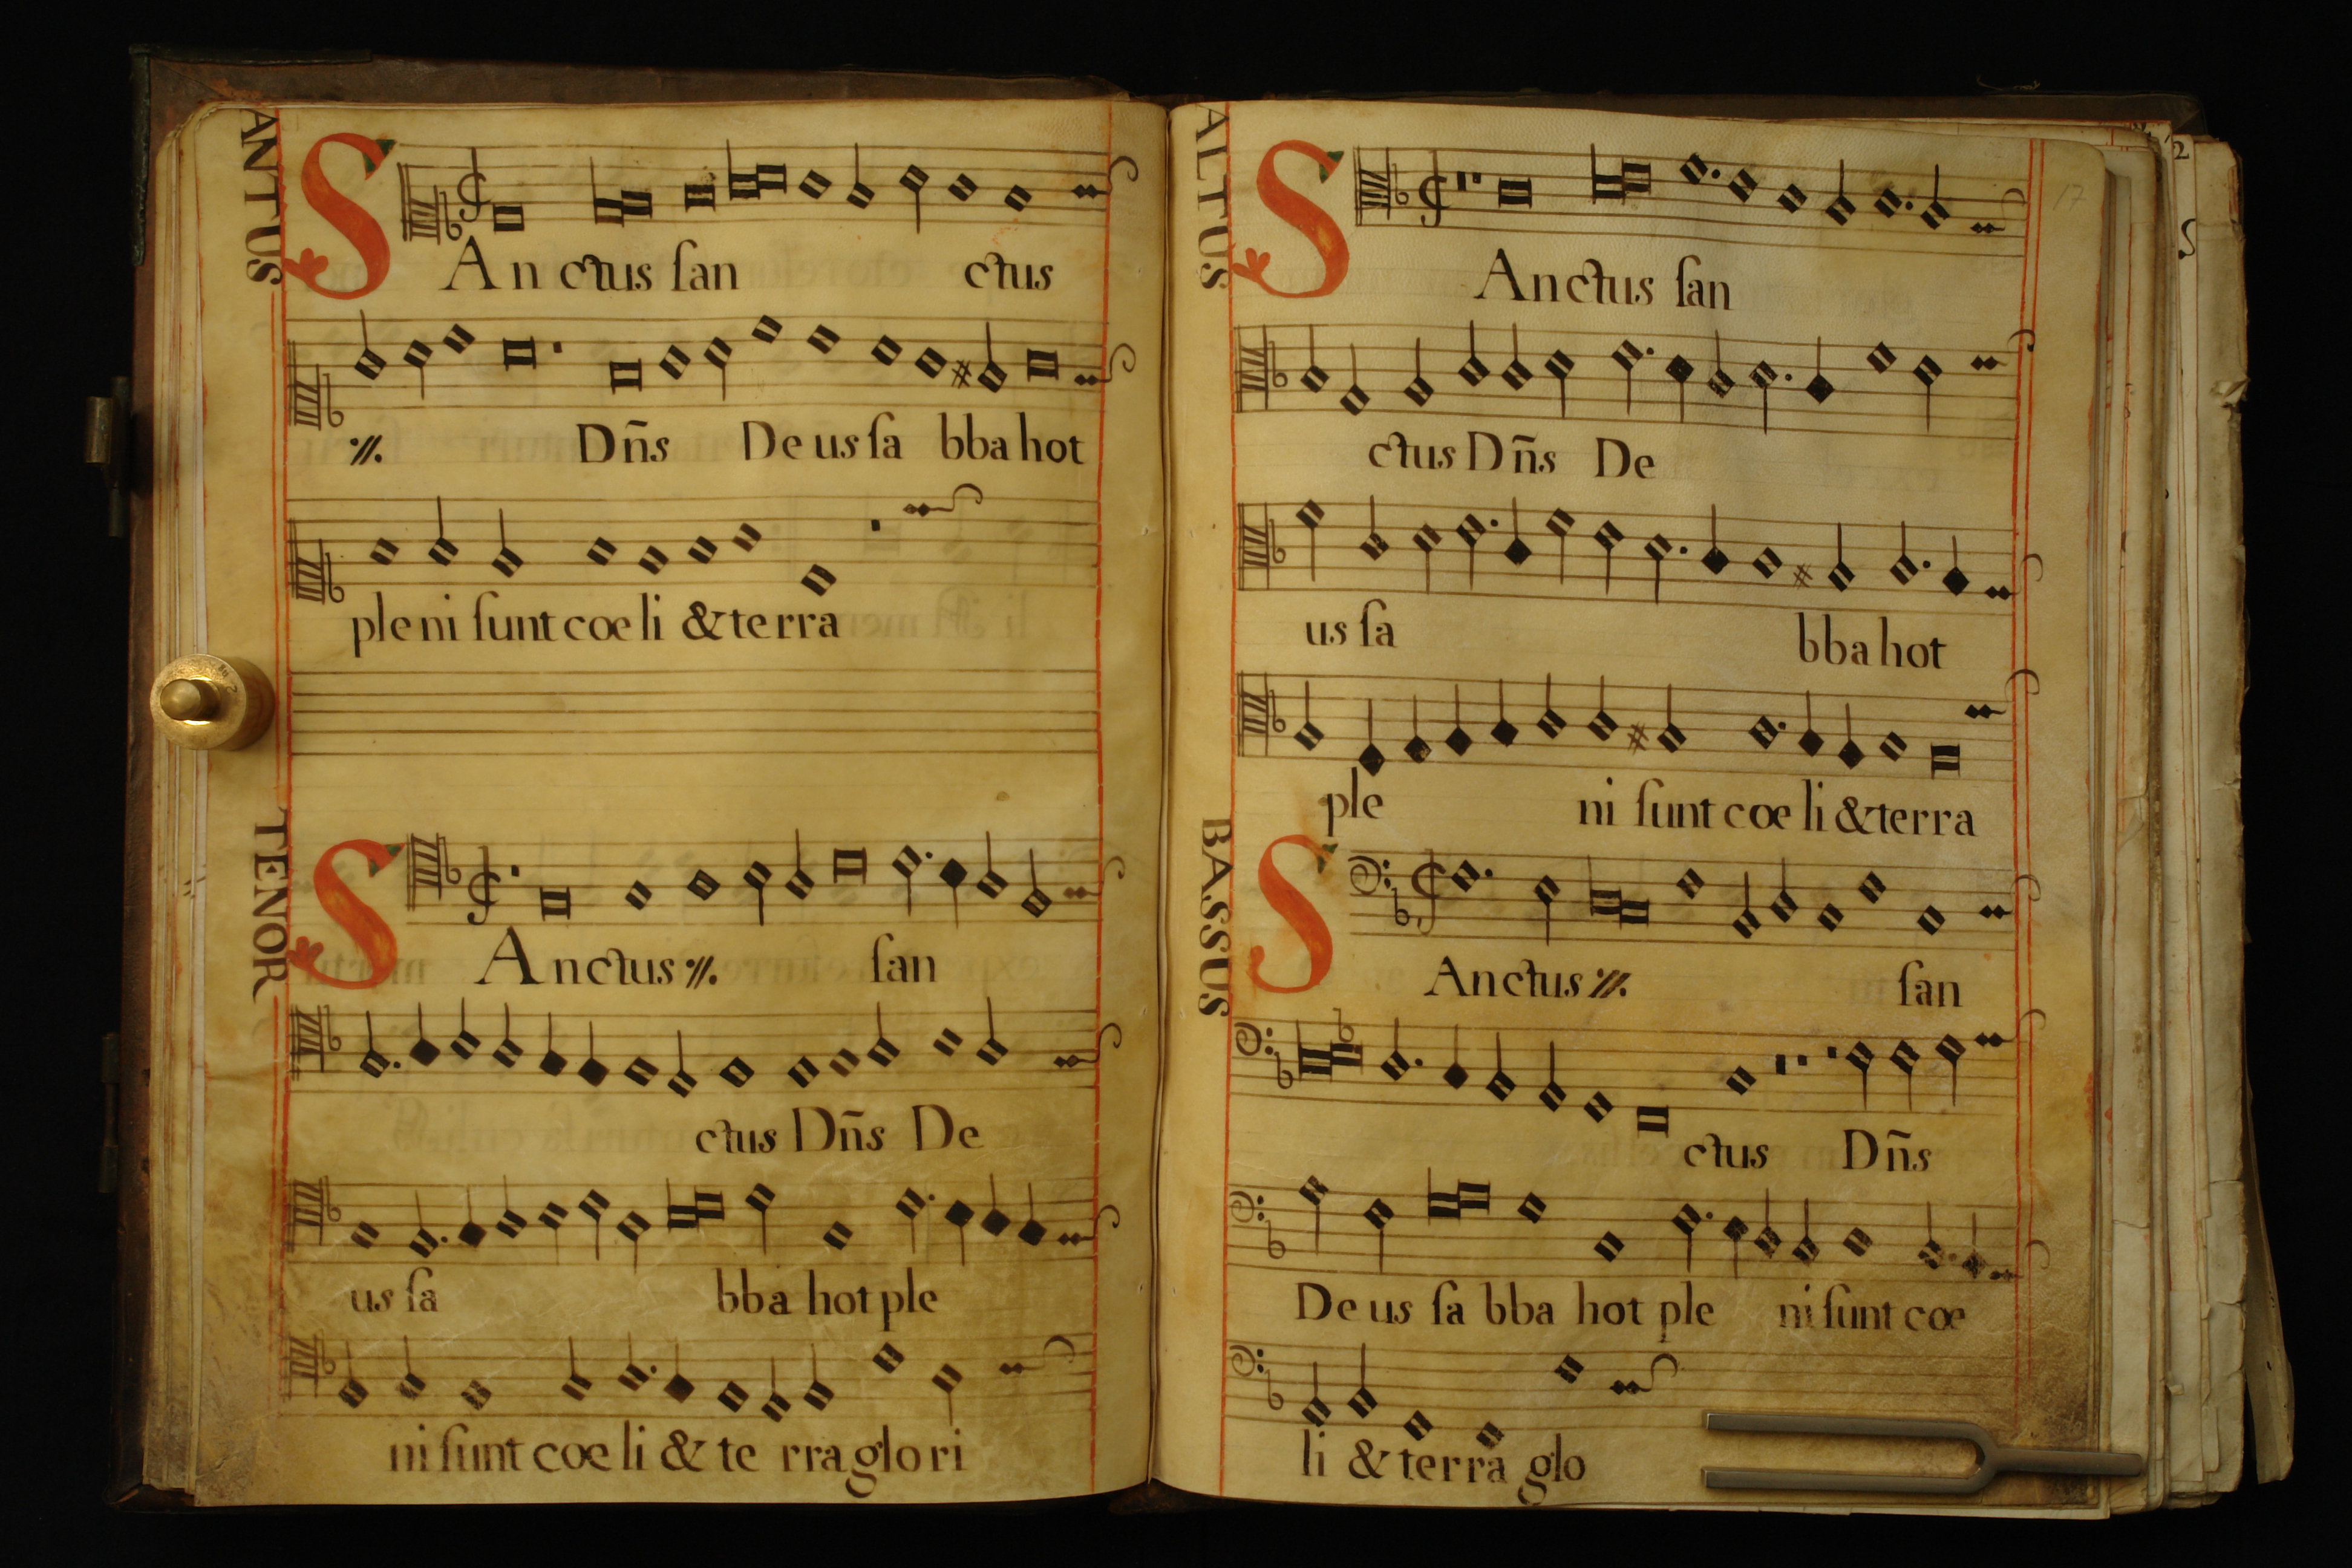 CANTUS
SAnctus ſan ctus
·//. Dn̄s Deus ſa bbahot
pleni ſunt coeli & terra
TENOR
SAnctus ·//. ſan
ctus Dn̄s De
us ſa bba hot ple
ni ſunt coeli & te rra glori
ALTUS
17
SAnctus ſan
ctus Dn̄s De
us ſa bbahot
ple ni ſunt coeli & terra
BASSUS
SAnctus ·//. ſan
ctus Dn̄s
Deus ſa bba hot ple ni ſunt coe
li & terra glo